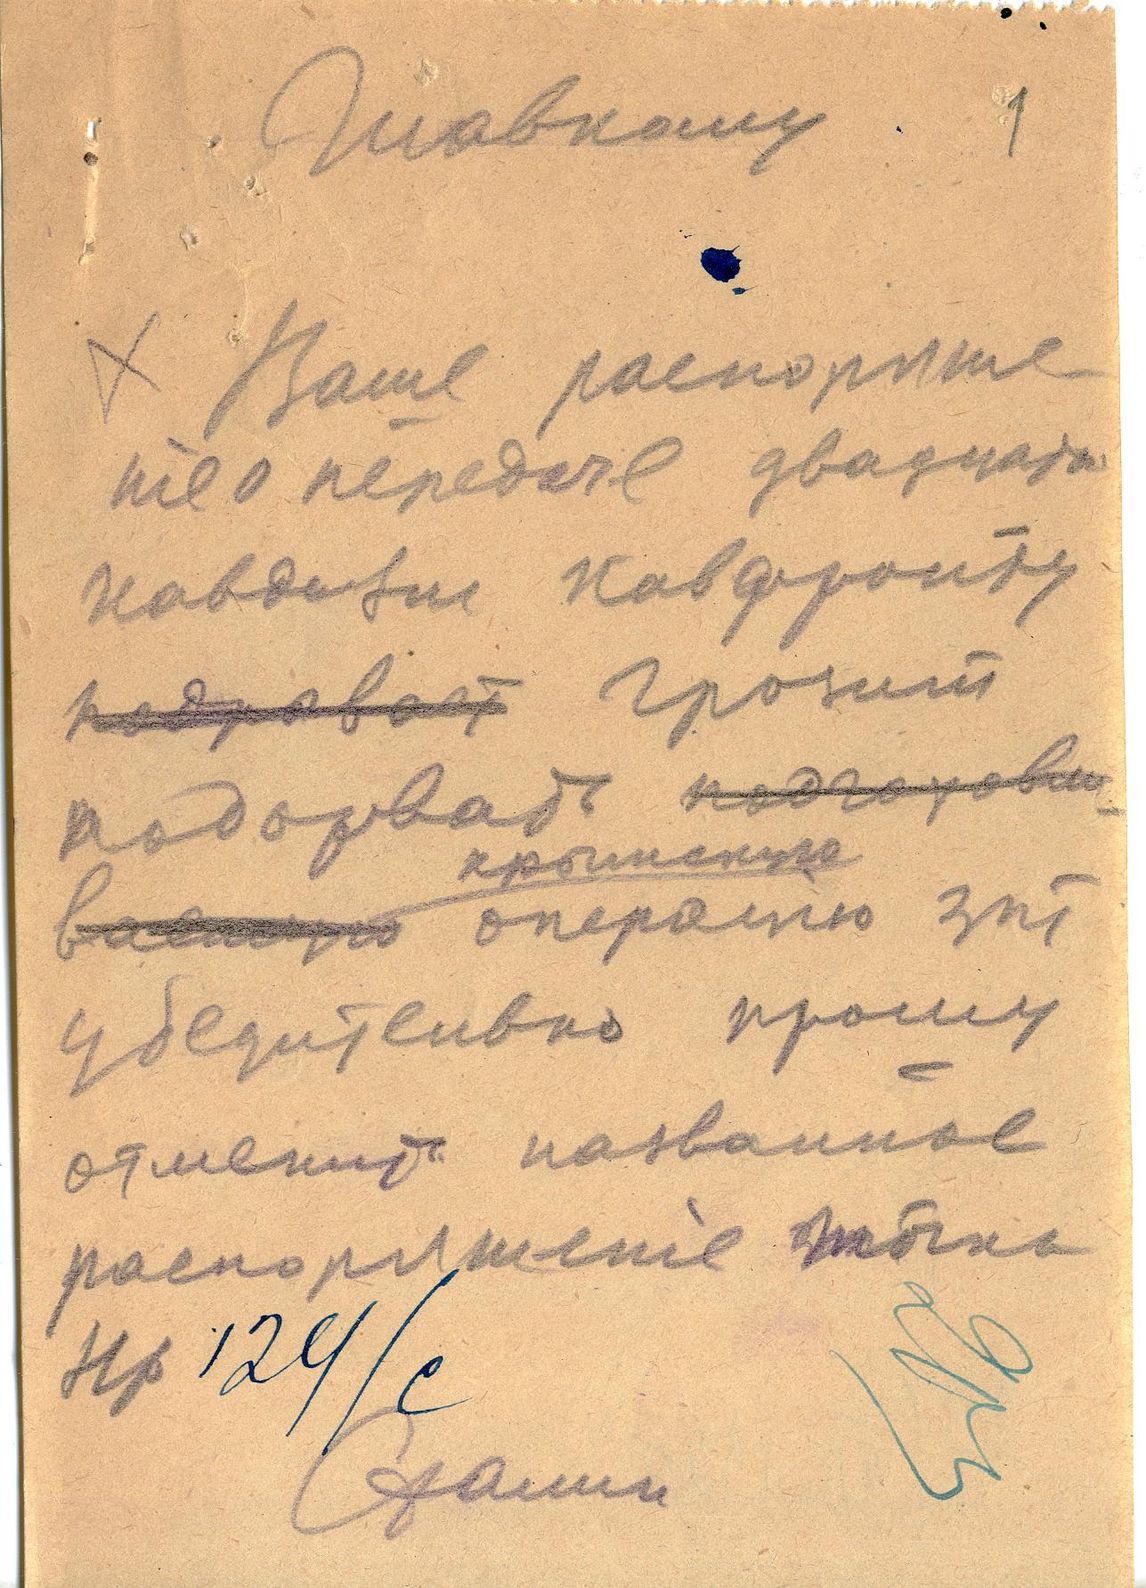 Главкому
1
Ваше распоряже-
ніе о передаче двадцать
кавдивзіи Кавфронту
подрывает грозит
подорвать подготовли-
крымскую
ваемую операцию зпт
убедительно прошу
отменить названное
распоряженіе точка
Нр 124/с
Сталин